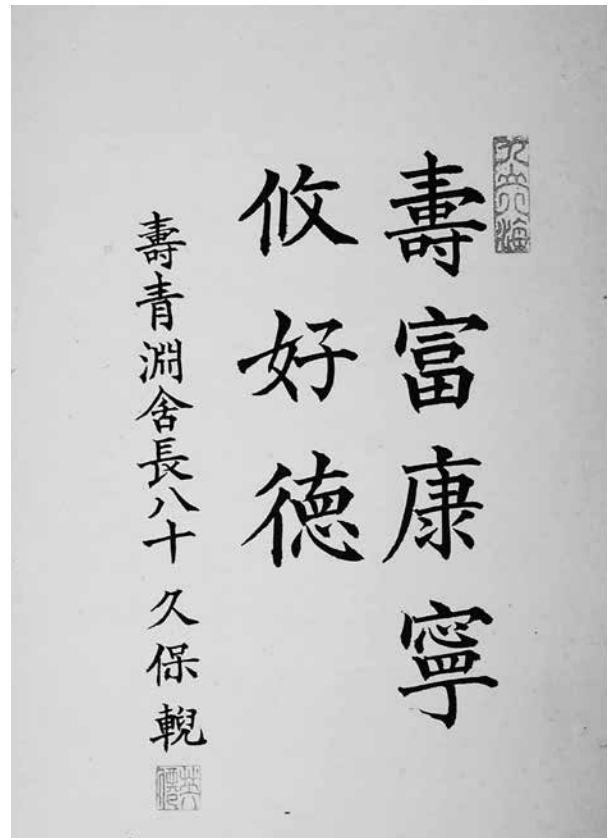 壽富康寧
攸好徳
壽青淵舎長八十 久保輗